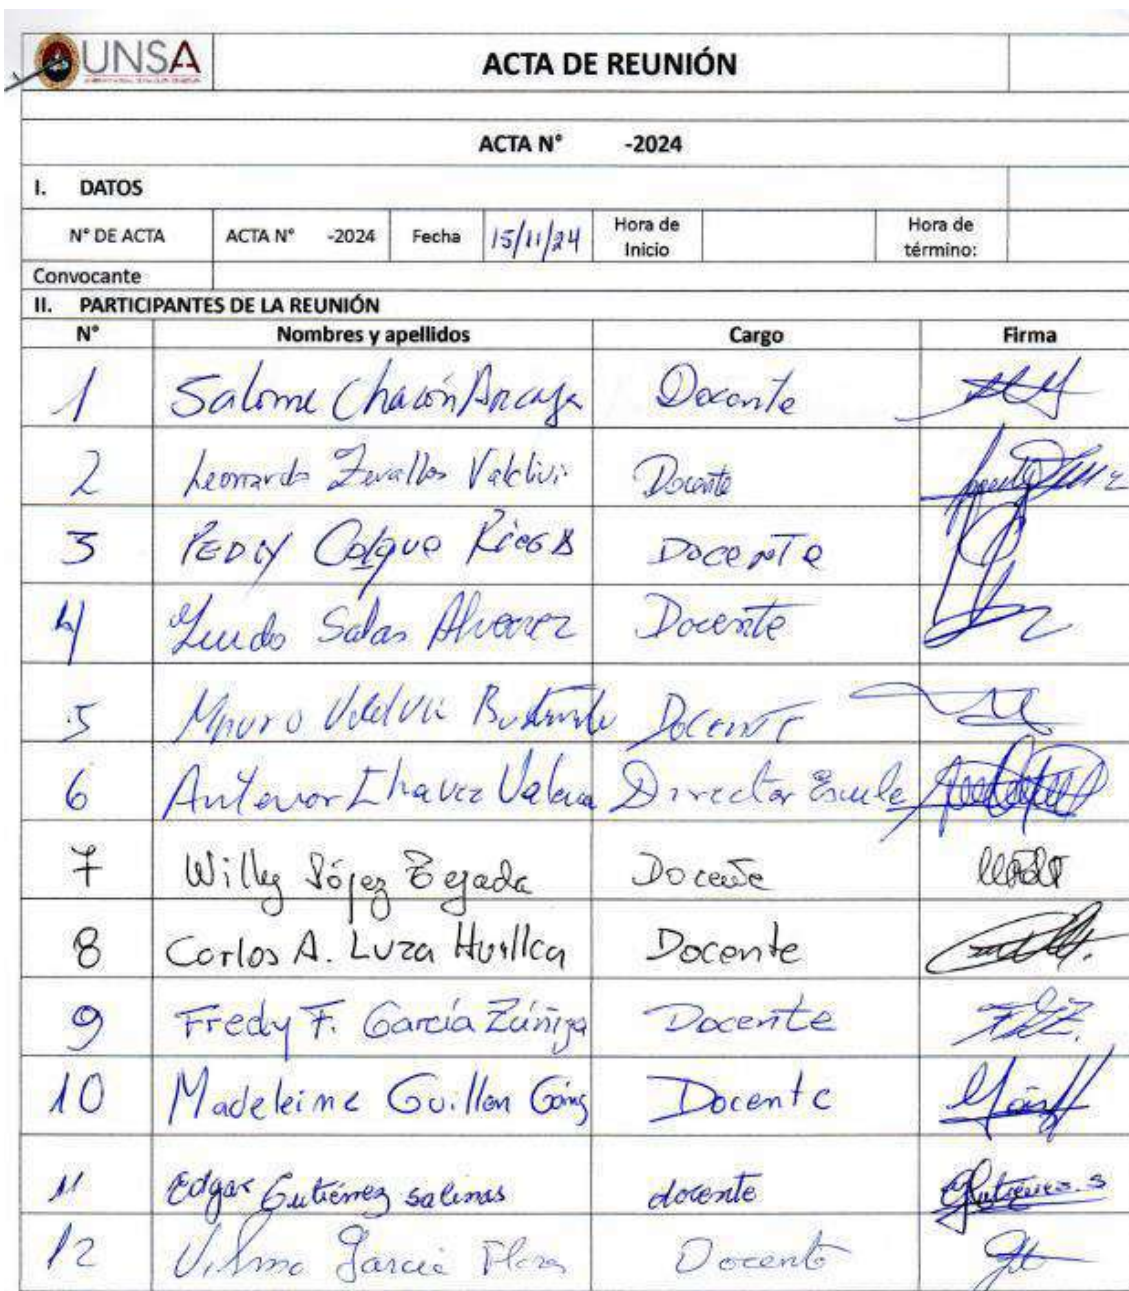 UNSA
ACTA DE REUNIÓN
ACTA N° -2024
I. DATOS
N° DE ACTA ACTA N° -2024 Fecha 15/11/24 Hora de Inicio Hora de término:
Convocante
II. PARTICIPANTES DE LA REUNIÓN
N° Nombres y apellidos Cargo Firma
1 Salome Chacón Docente
2 Leonardo Zevallos Valdivi Docente
3 Colque Docente
4 Salas Docente
5 Mauro Docente
6 Antenor Chavez Valencia Director Escuela
7 Willy López Zegada Docente
8 Carlos A. Luza Huillca Docente
9 Fredy F. García Zúñiga Docente FGZ.
10 Madeleine Guillen Docente
11 Edgar Gutiérrez Salinas docente Gutierrez.s
12 Vilma Garcia Flores Docente